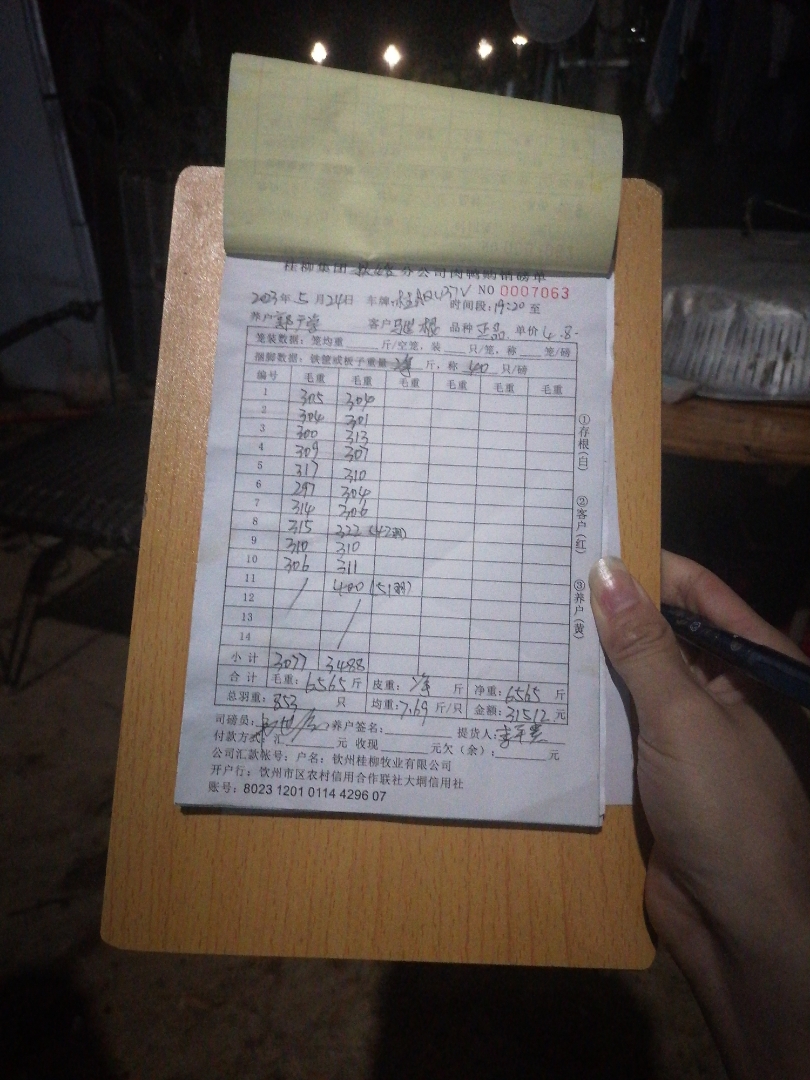 桂柳集团 钦州 分公司肉鸭购销磅单
NO 0007063
2023年 5 月 24日 车牌: 时间段: 19:20 至
养户 客户 品种 正品 单价 4.8-
笼装数据: 笼均重 斤/空笼, 装 只/笼, 称 笼/磅
捆脚数据: 铁筐或板子重量 净 斤, 称 40 只/磅
编号 毛重 毛重 毛重 毛重 毛重 毛重
1 305 304
2 304 301
3 300 313
4 309 307
5 317 310
6 297 304
7 314 306
8 315 322 (42羽)
9 310 310
10 306 311
11 / 400 (51羽)
12
13 /
14
小计 3077 3488
合计 毛重: 6565 斤 皮重: 净 斤 净重: 6565 斤
总羽重: 853 只 均重: 7.69 斤/只 金额: 31512 元
司磅员: 养户签名: 提货人:
付款方式: 汇 元 收现 元欠(余): 元
公司汇款帐号: 户名: 钦州桂柳牧业有限公司
开户行: 钦州市区农村信用合作联社大垌信用社
账号: 8023 1201 0114 4296 07
①存根(白)
②客户(红)
③养户(黄)